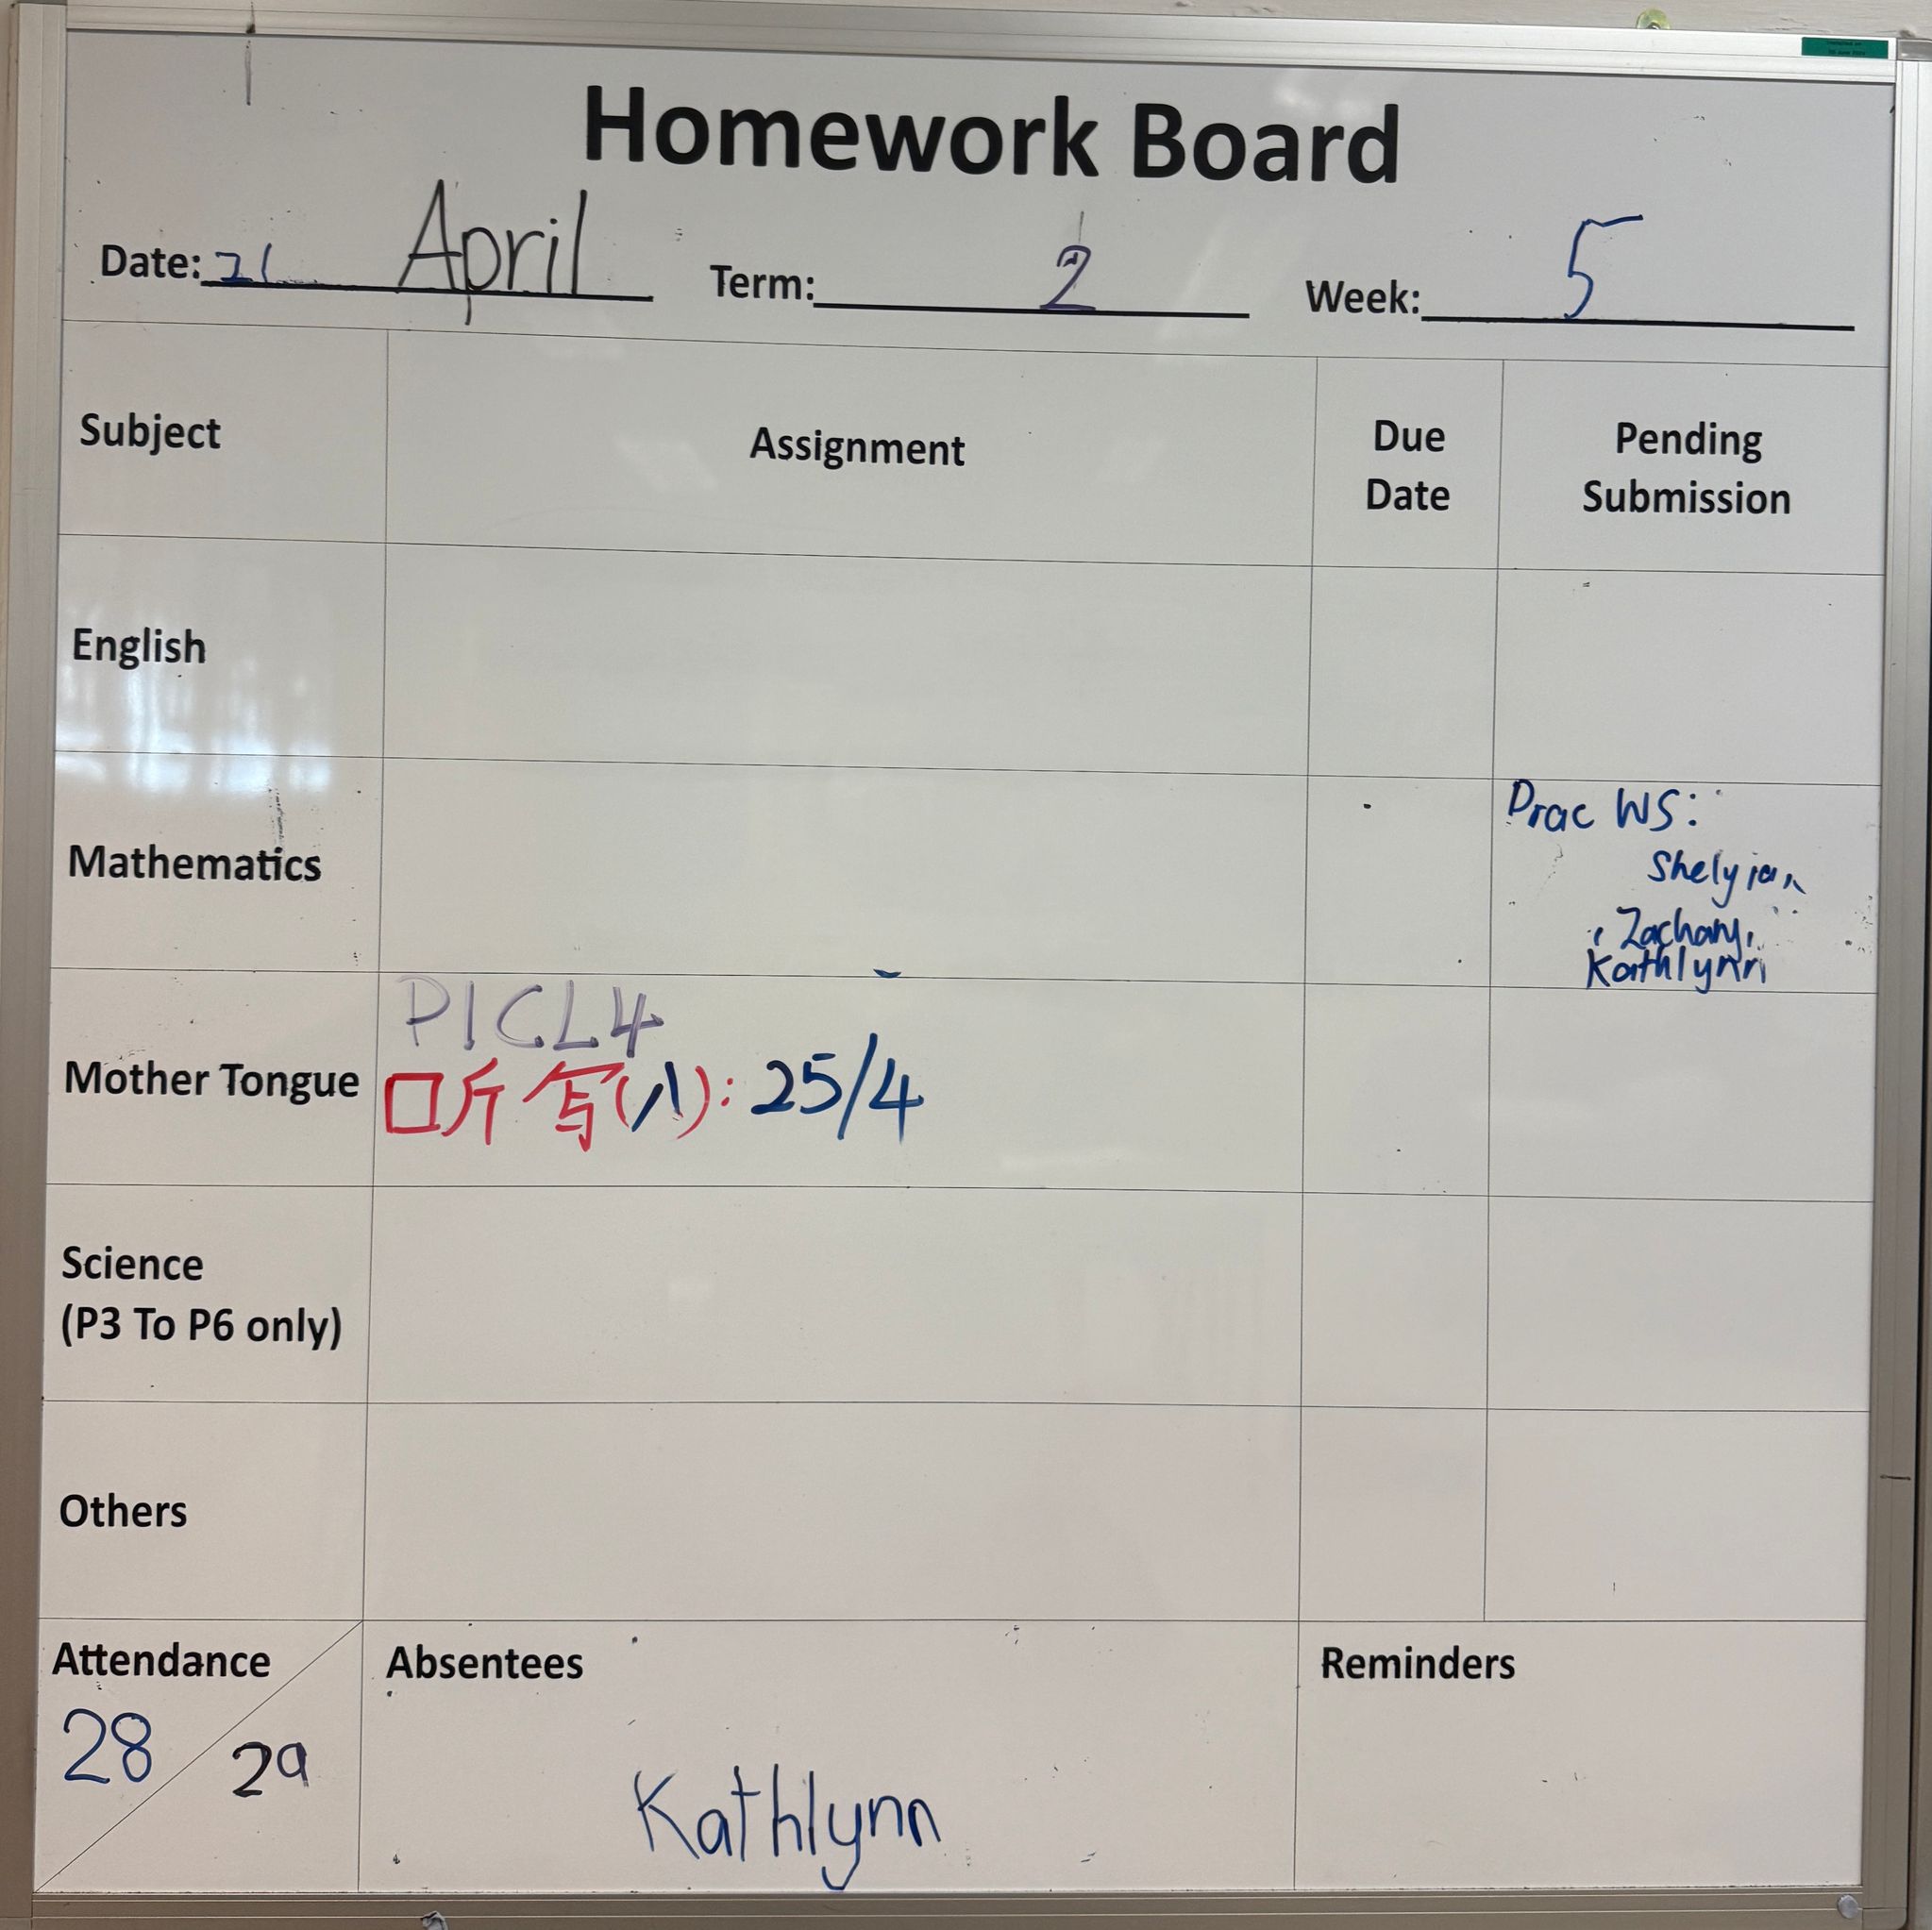 Homework Board
Date: 21 April Term: 2 Week: 5
Subject Assignment Due Date Pending Submission
English
Mathematics
Prac WS:
Shelyian
, Zachary,
Kathlynn
Mother Tongue
P1CL4
听写(八): 25/4
Science
(P3 To P6 only)
Others
Attendance Absentees Reminders
28 / 29
Kathlynn